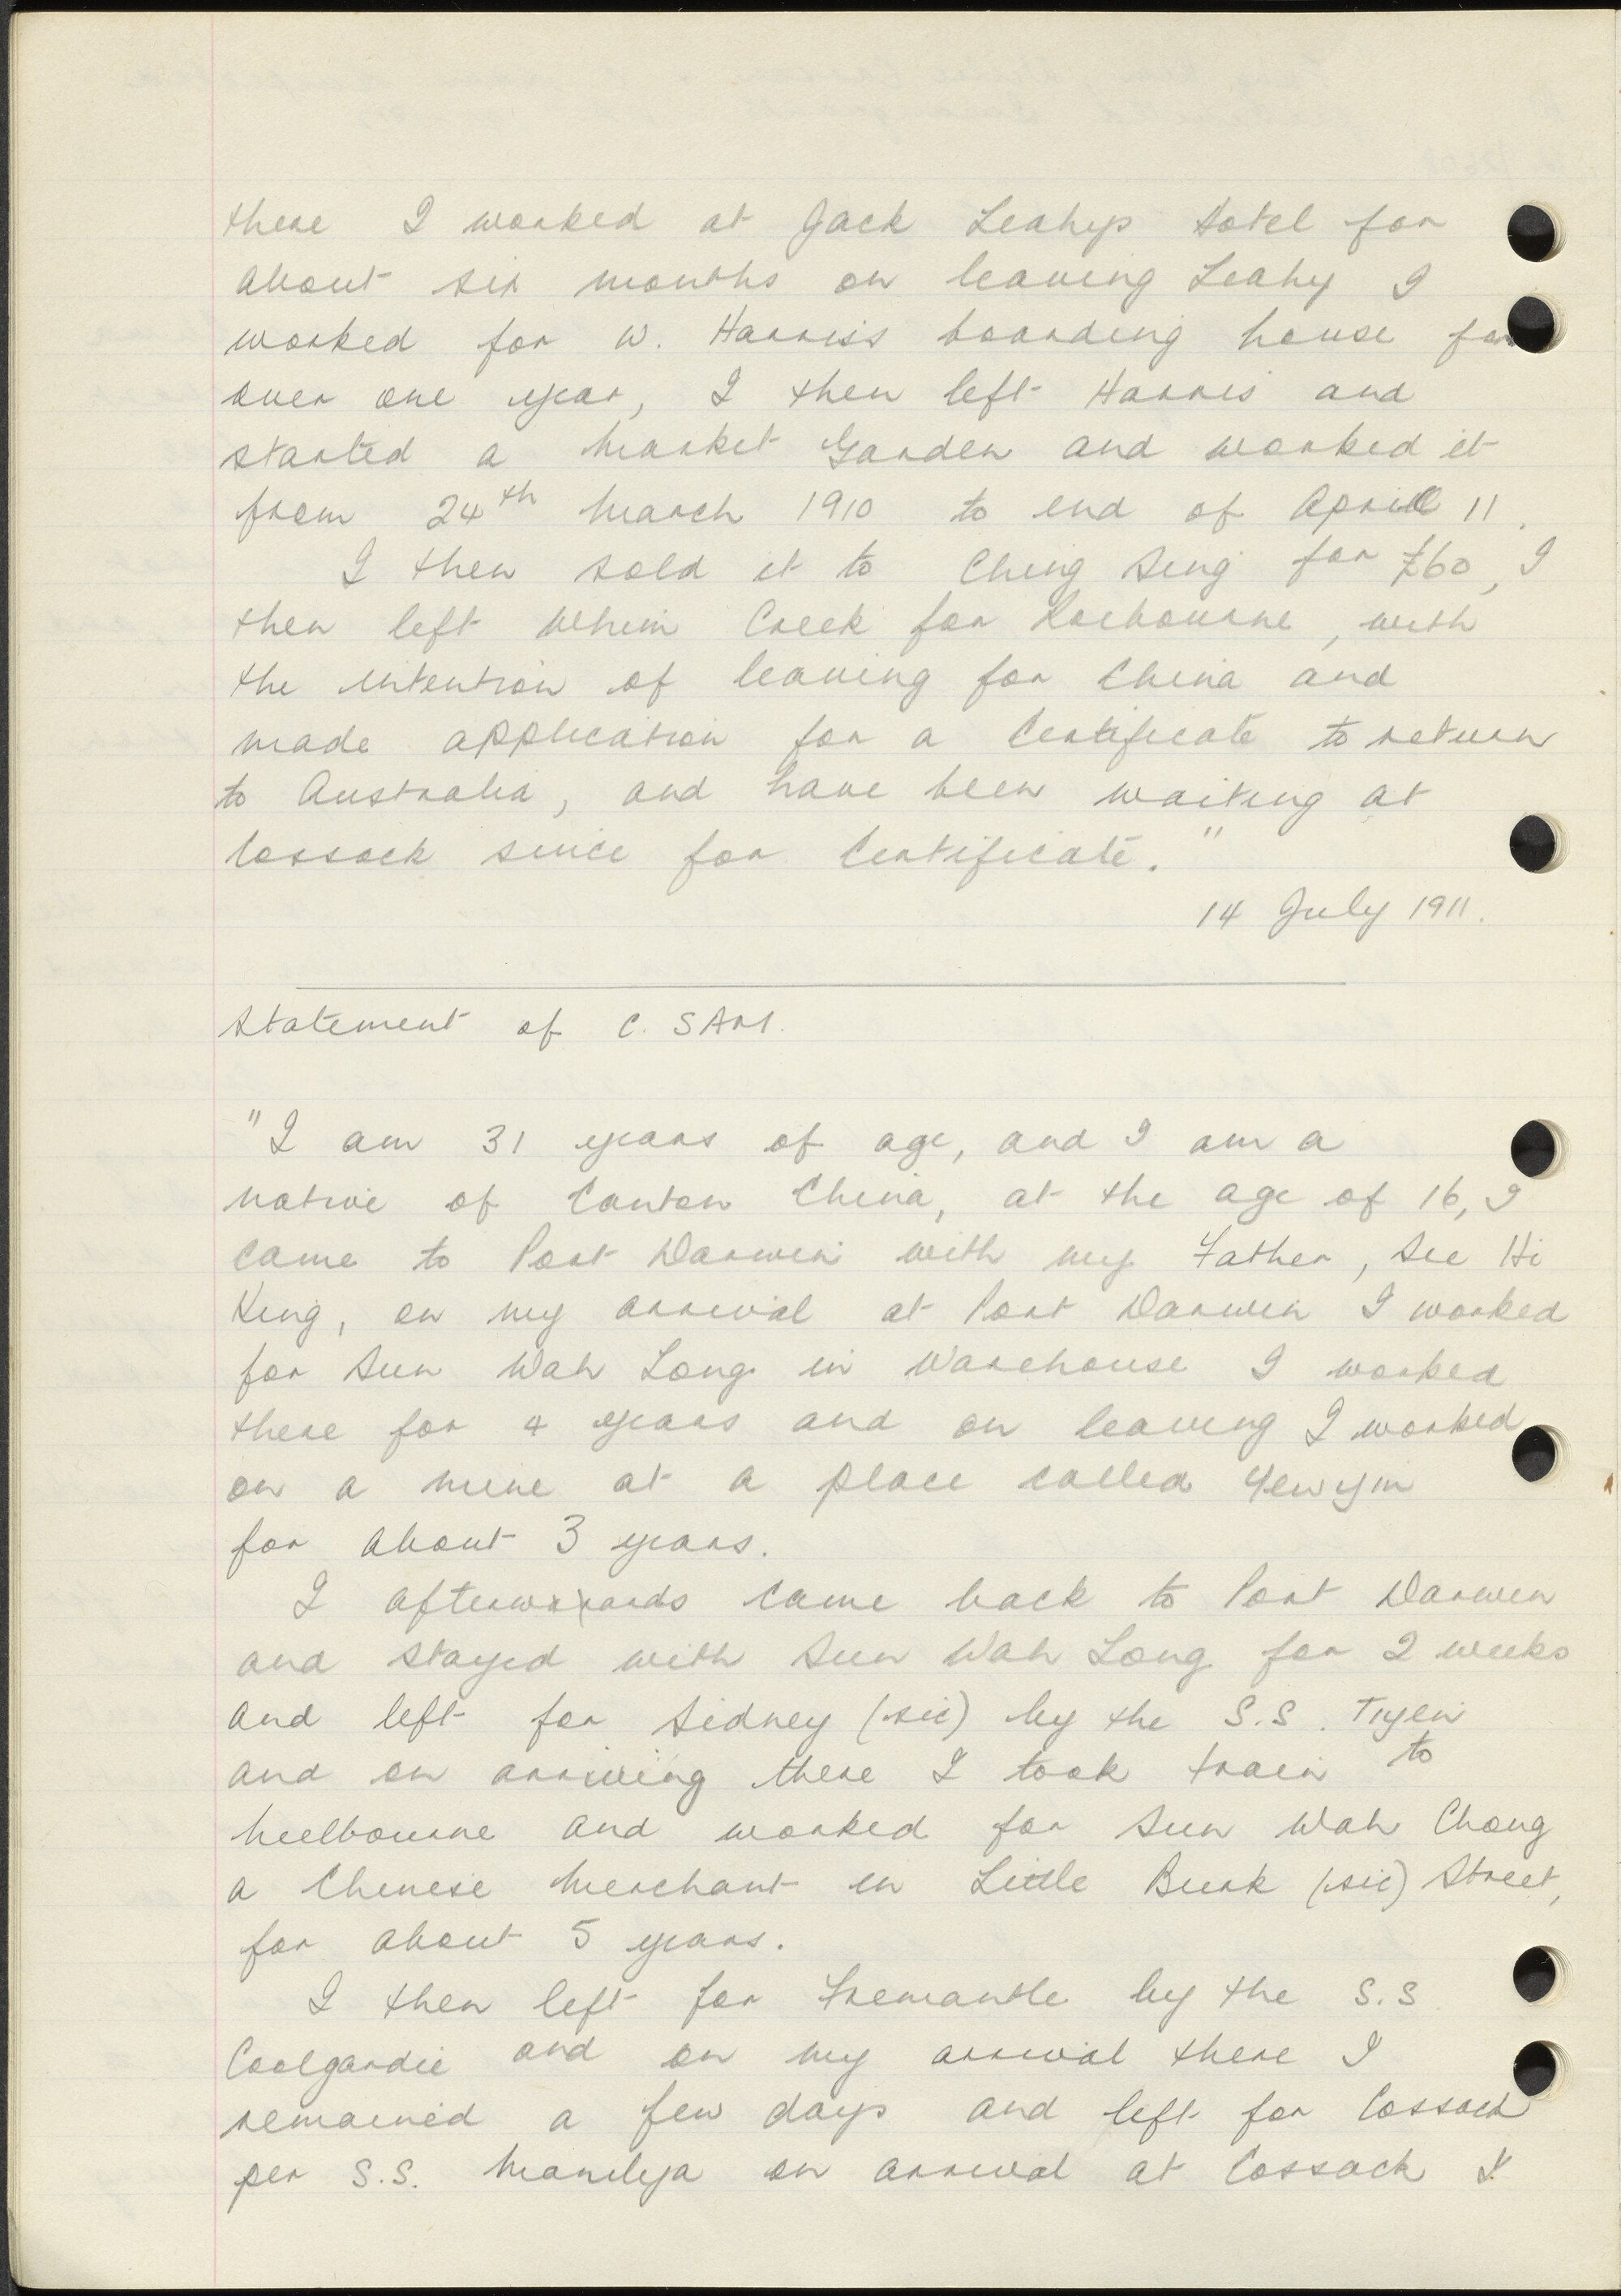 there I worked at Jack Leahys Hotel for
about six months on leaving Leahy I
worked for W. Harris's boarding house for
over one year, I then left Harris and
started a Market Garden and worked it
from 24th March 1910 to end of April 11.
I then sold it to Ching Sing for £60, I
then left Whim Creek for Roebourne, with
the intention of leaving for China and
made application for a Certificate to return
to Australia, and have been waiting at
Cossack since for Certificate."
14 July 1911.
Statement of C. SAM.
"I am 31 years of age, and I am a
native of Canton China, at the age of 16, I
came to Port Darwin with my Father, See Hi
King, on my arrival at Port Darwin I worked
for Sun Wah Long in Warehouse I worked
there for 4 years and on leaving I worked
on a mine at a place called Yewyin
for about 3 years.
I afterwards came back to Port Darwin
and stayed with Sun Wah Long for 2 weeks
and left for Sidney (sic) by the S.S. Tiyen
and on arriving there I took train to
Melbourne and worked for Sun Wah Chong
a Chinese Merchant in Little Burk (sic) Street,
for about 5 years.
I then left for Fremantle by the S.S
Coolgardie and on my arrival there I
remained a few days and left for Cossack
per S.S. Manilya on arrival at Cossack I